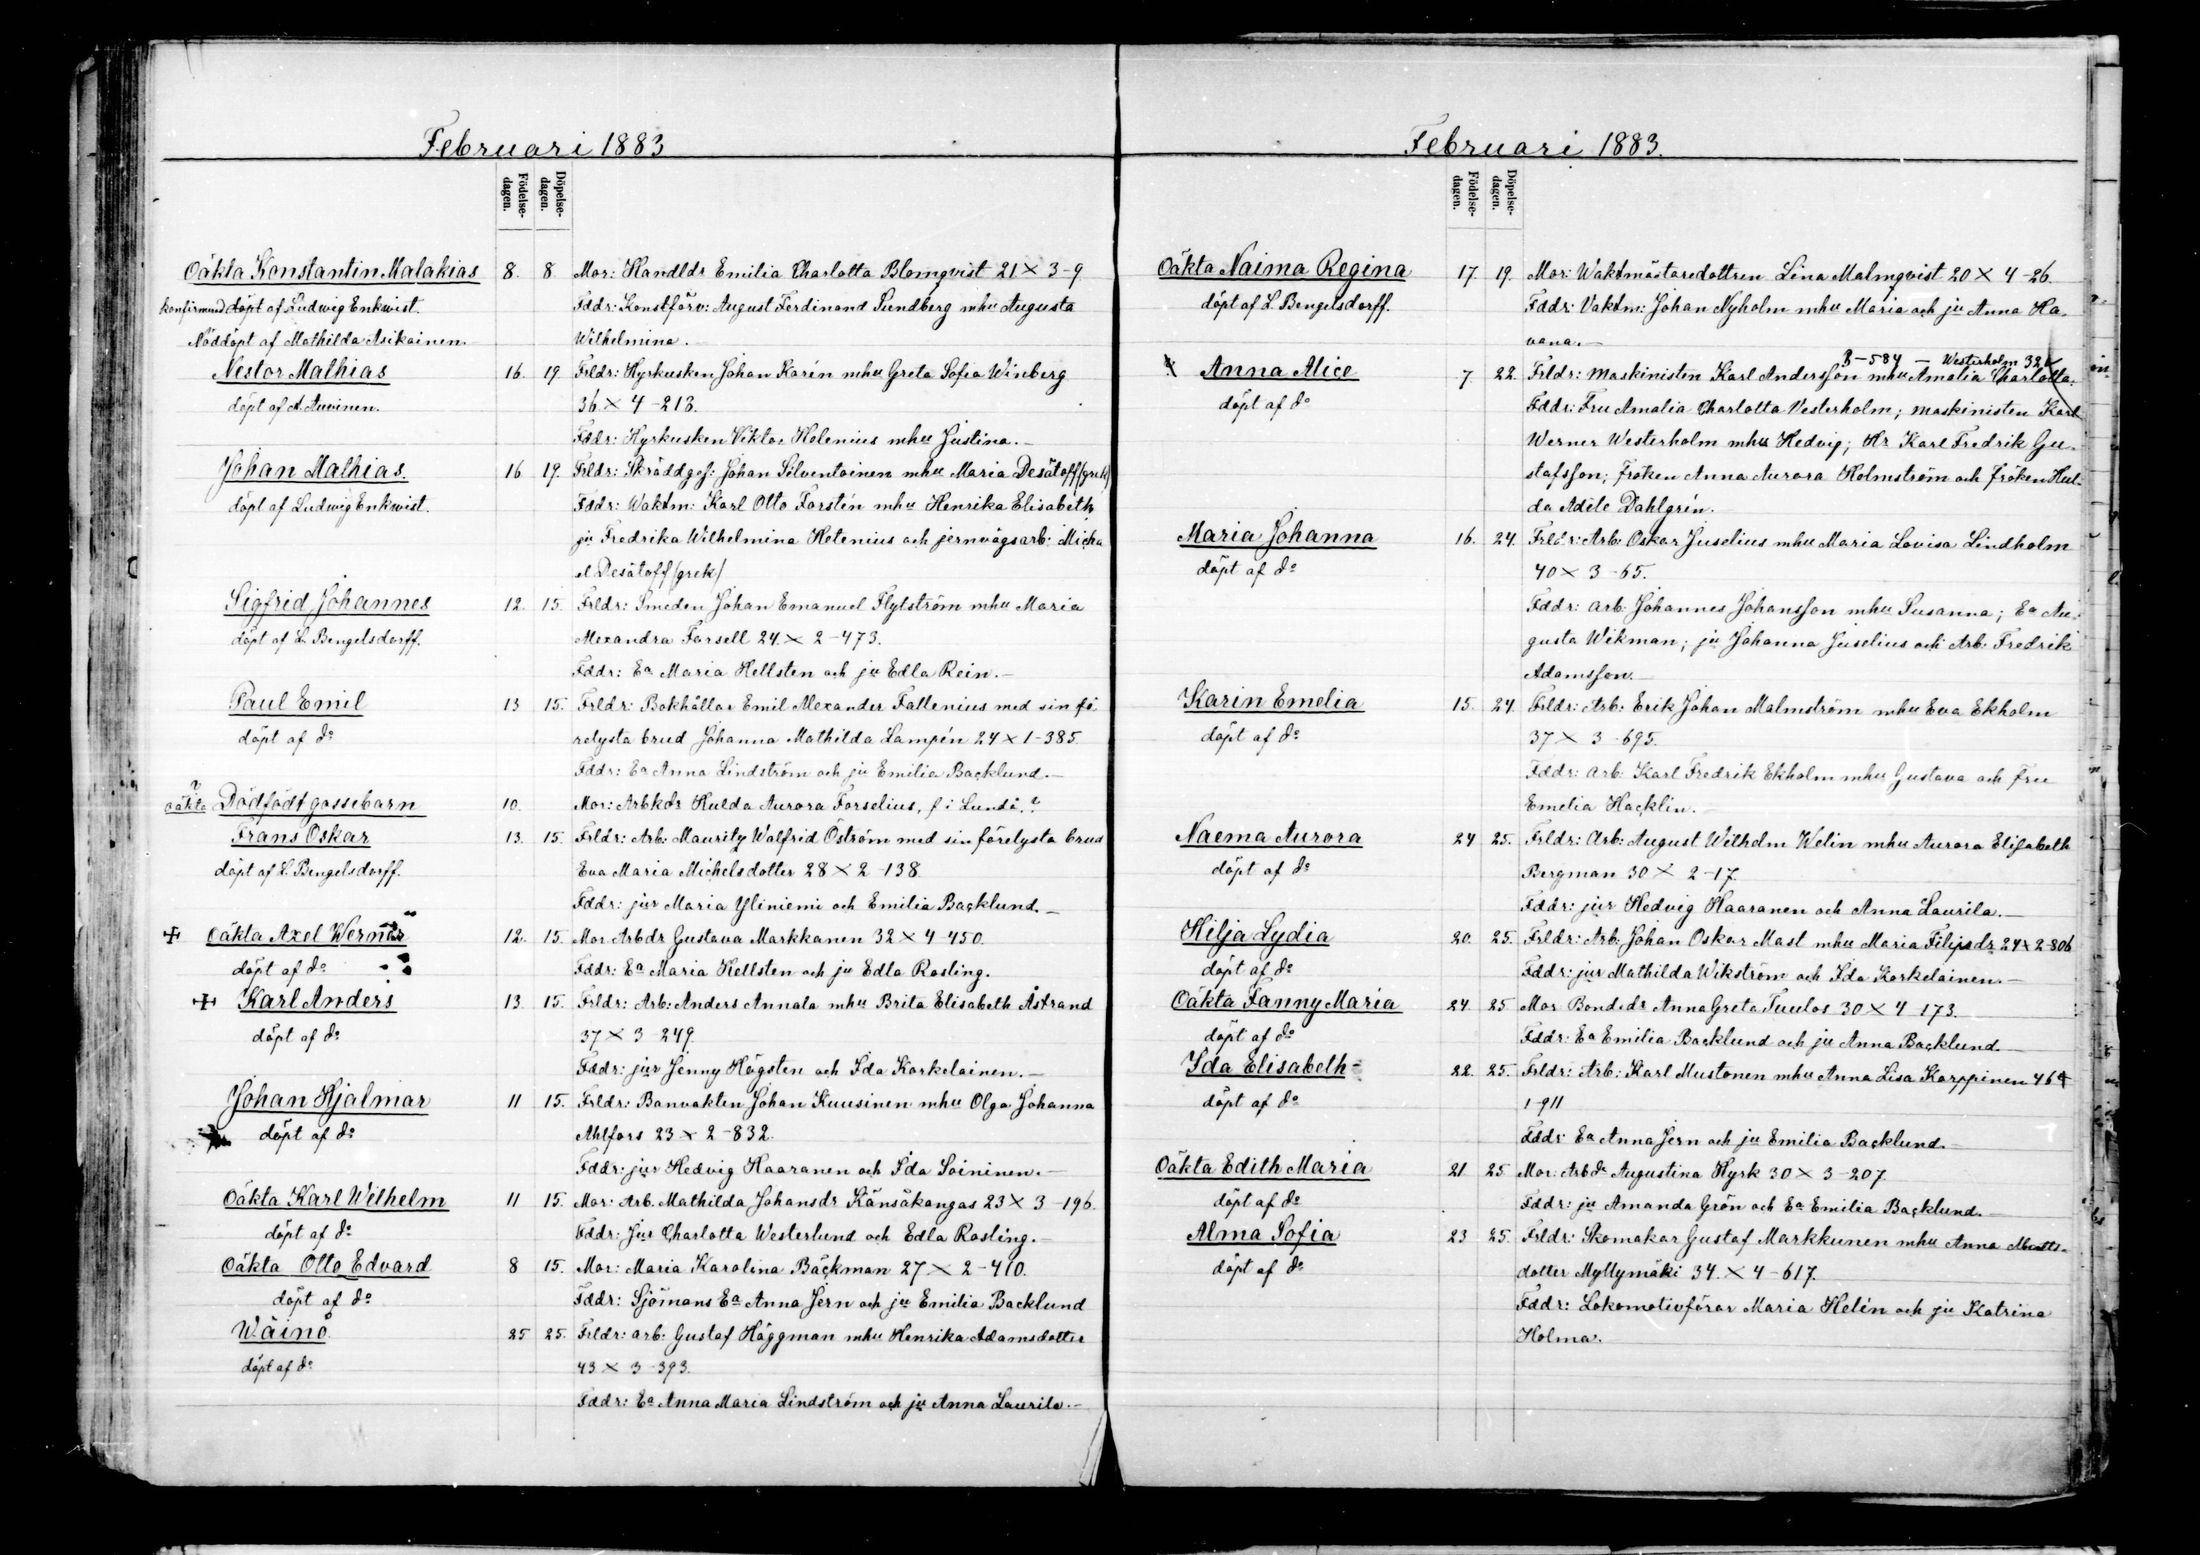 Februari 1883
Födelse-dagen.
Döpelse-dagen.
Oäkta Konstantin Malakias 8. 8 Mor: Handldr Emilia Charlotta Blomqvist 21 × 3-9
konfirmerad döpt af Ludwig Enkvist. Fddr: Konstförv: August Ferdinand Sundberg mhu Augusta
Nöddöpt af Mathilda Asikainen. Wilhelmina.
Nestor Mathias 16. 19 Frldr: Hyrkusken Johan Karén mhu Greta Sofia Winberg
döpt af A. Auvinen. 36 × 4-213.
Fddr: Hyrkusken Viktor Helenius mhu Justina.
Johan Mathias. 16 19. Frldr: Skräddges: Johan Silventoinen mhu Maria Desätoff (grek)
döpt af Ludwig Enkvist. Fddr: Waktm: Karl Otto Forstén mhu Henrika Elisabeth,
ju Fredrika Wilhelmina Helenius och jernvägsarb: Micha
el Desätoff (grek)
Sigfrid Johannes 12. 15. Frldr: Smeden Johan Emanuel Flytström mhu Maria
döpt af L. Bengelsdorff. Alexandra Forsell 24 × 2-473.
Fddr: Ea Maria Hellsten och ju Edla Rein.
Paul Emil 13 15. Frldr: Bokhållar Emil Alexander Fallenius med sin fö
döpt af do relysta brud Johanna Mathilda Lampén 24 × 1-385
Fddr: Ea Anna Lindström och ju Emilia Backlund.
?
oäkta Dödfödt gossebarn 10. Mor: Arbkdr Hulda Aurora Forselius, f i Lundå.?
Frans Oskar 13. 15. Frldr: Arb: Mauritz Walfrid Öström med sin förelysta brud
döpt af L. Bengelsdorff. Eva Maria Michelsdotter 28 × 2-138.
Fddr: jur Maria Yliniemi och Emilia Backlund.
Oäkta Axel Werner 12. 15. Mor Arbdr Gustava Markkanen 32 × 4-450.
döpt af do Fddr: Ea Maria Hellsten och ju Edla Rosling.
Karl Anders 13. 15. Frldr: Arb: Anders Annala mhu Brita Elisabeth Åstrand
döpt af do 37 × 3-249.
Fddr: jur Jenny Högsten och Ida Korkelainen.
Johan Hjalmar 11 15. Frldr: Banvakten Johan Kuusinen mhu Olga Johanna
döpt af do Ahlfors 23 × 2-832.
Fddr: jur Hedvig Haaranen och Ida Soininen.
Oäkta Karl Wilhelm 11 15. Mor: Arb. Mathilda Johansdr Känsäkangas 23 × 3-196.
döpt af do Fddr: Jur Charlotta Westerlund och Edla Rosling.
Oäkta Otto Edvard 8 15. Mor: Maria Karolina Bäckman 27 × 2-410.
döpt af do Fddr: Sjömans Ea Anna Jern och ju Emilia Backlund
Wäinö 25 25. Frldr: arb: Gustaf Häggman mhu Henrika Adamsdotter
döpt af do 43 × 3-393.
Fddr: Ea Anna Maria Lindström och ju Anna Laurila.
Februari 1883.
Födelse-dagen.
Döpelse-dagen.
Oäkta Naima Regina 17. 19. Mor: Waktmästaredottren Lina Malmqvist 20 × 4-26.
döpt af L. Bengelsdorff. Fddr: Vaktm: Johan Nyholm mhu Maria och ju Anna Ha
vana.
3-584 - Westerholm 32
Anna Alice 7. 22. Frldr: Maskinisten Karl Andersson mhu Amalia Charlotta.
döpt af do Fddr: Fru Amalia Charlotta Vesterholm; maskinisten Karl
Werner Westerholm mhu Hedvig; Hr Karl Fredrik Gu-
stafsson; fröken Anna Aurora Holmström och fröken Hul-
da Adèle Dahlgrén.
Maria Johanna 16. 24. Frldr: Arb: Oskar Juselius mhu Maria Lovisa Lindholm
döpt af do 40 × 3-65.
Fddr: arb: Johannes Johansson mhu Susanna; Ea Au-
gusta Wikman; ju Johanna Juselius och Arb: Fredrik
Adamsson.
Karin Emelia 15. 24. Frldr: Arb: Erik Johan Malmström mhu Eva Ekholm
döpt af do 37 × 3-695.
Fddr: Arb: Karl Fredrik Ekholm mhu Gustava och Fru
Emelia Hacklin.
Naema Aurora 24 25. Frldr: Arb: August Wilhelm Welin mhu Aurora Elisabeth
döpt af do Bergman 30 × 2-17.
Fddr: jur Hedvig Haaranen och Anna Laurila.
Hilja Lydia 20. 25. Frldr: Arb: Johan Oskar Mast mhu Maria Filipsdr 24 × 2-806
döpt af do Fddr: jur Mathilda Wikström och Ida Korkelainen.
Oäkta Fanny Maria 24. 25 Mor Bondedr Anna Greta Tuulos 30 × 4-173.
döpt af do Fddr: Ea Emilia Backlund och ju Anna Backlund.
Ida Elisabeth 22. 25. Frldr: Arb: Karl Mustonen mhu Anna Lisa Karppinen 46
döpt af do 1-911
Fddr: Ea Anna Jern och ju Emilia Backlund.
Oäkta Edith Maria 21 25 Mor: Arbdr Augustina Hyrk 30 × 3-207.
döpt af do Fddr: ju Amanda Grön och Ea Emilia Backlund.
Alma Sofia 23 25. Frldr: Skomakar Gustaf Markkunen mhu Anna Matts-
döpt af do dotter Myllymäki 34. × 4-617.
Fddr: Lokomotivförar Maria Helén och ju Katrina
Holma.